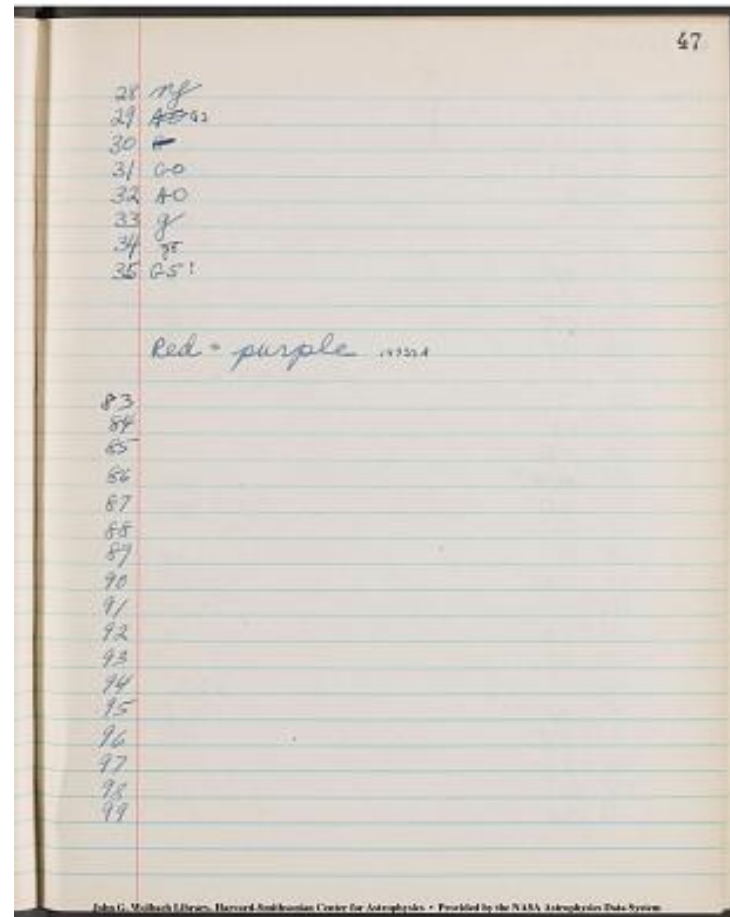 47
28 nf
29 G2
30
31 G0
32 A0
33 g
34
35 G5!
Red = purple
83
84
85
86
87
88
89
90
91
92
93
94
95
96
97
98
99
John G. Wolbach Library, Harvard-Smithsonian Center for Astrophysics • Provided by the NASA Astrophysics Data System